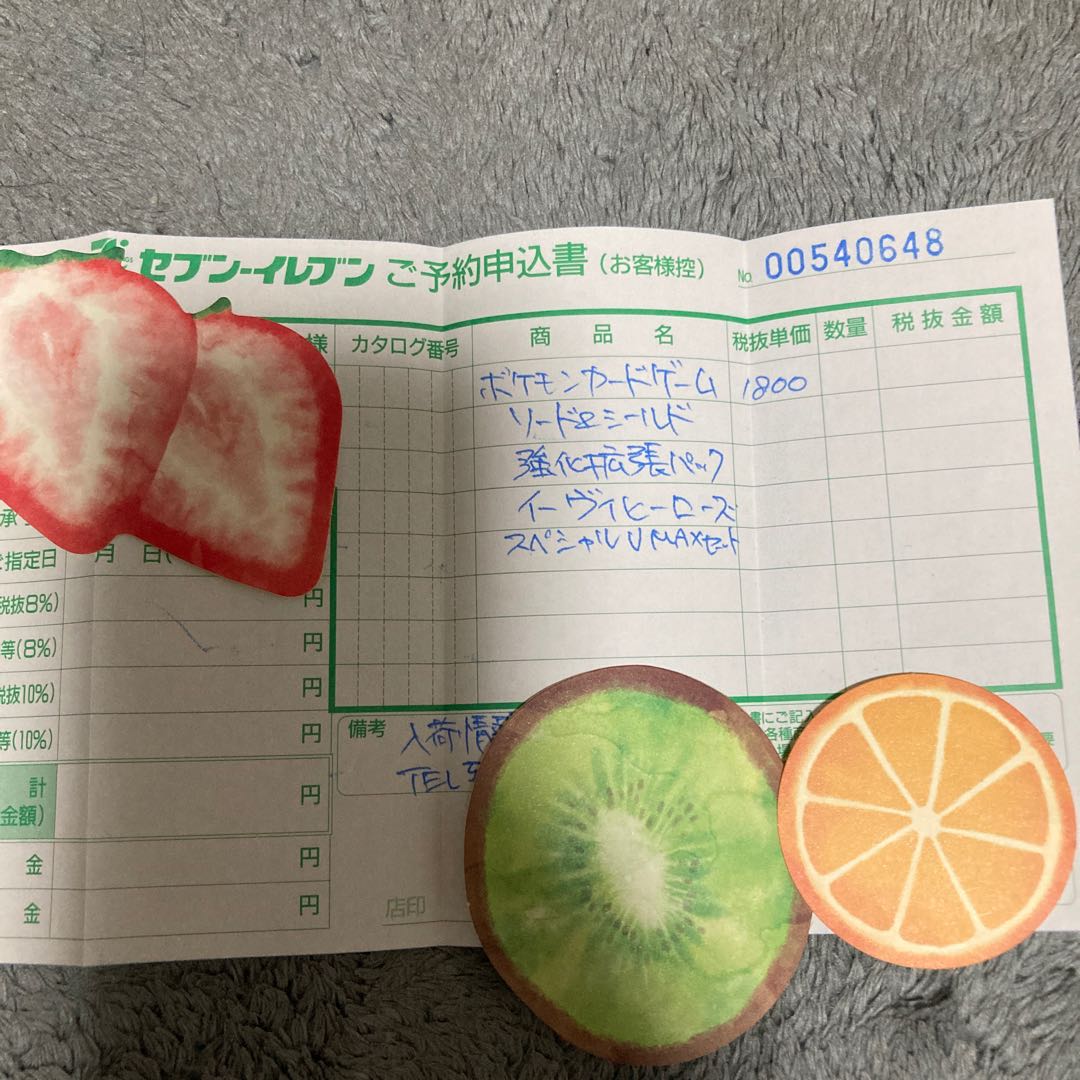 セブン-イレブン ご予約申込書 (お客様控) No. 00540648
様 カタログ番号 商品名 税抜単価 数量 税抜金額
ポケモンカードゲーム 1800
ソード&シールド
強化拡張パック
イーヴイヒーローズ
スペシャルVMAXセット
承
ご指定日 月 日(
税抜8%) 円
等(8%) 円
税抜10%) 円
等(10%) 円
計 円
金額)
金 円
金 円
備考 入荷情
TEL
書にご記入
各種
要
店印